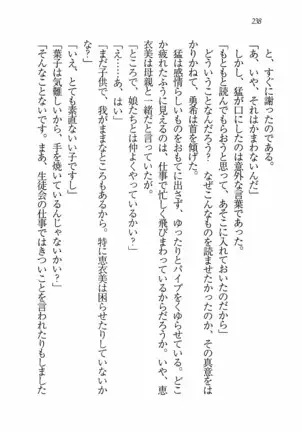 238
と、すぐに謝ったのである。
「あ、いや、それはかまわないんだ」
しかし、猛が口にしたのは意外な言葉であった。
「もともと読んでもらおうと思って、あそこに入れておいたのだから」
どういうことなんだろう？　なぜこんなものを読ませたかったのか、その真意をは
かりかねて、勇希は首を傾げた。
猛は感情らしいものをおもてに出さず、ゆったりとパイプをくゆらせている。どこ
か疲れたように見えるのは、仕事で忙しく飛びまわっているからだろうか。いや、恵
衣美は母親と一緒だと言っていたが。
「ところで、娘たちとは仲よくやっているかい？」
「え……あ、はい」
「まだ子供で、我がままなところもあるから。特に恵衣美は困らせたりしていないか
な？」
「いえ、とても素直ないい子ですし」
「葉子は気難しいから、手を焼いているんじゃないかい？」
「そんなことないです。まあ、生徒会の仕事ではきついことを言われたりもしました